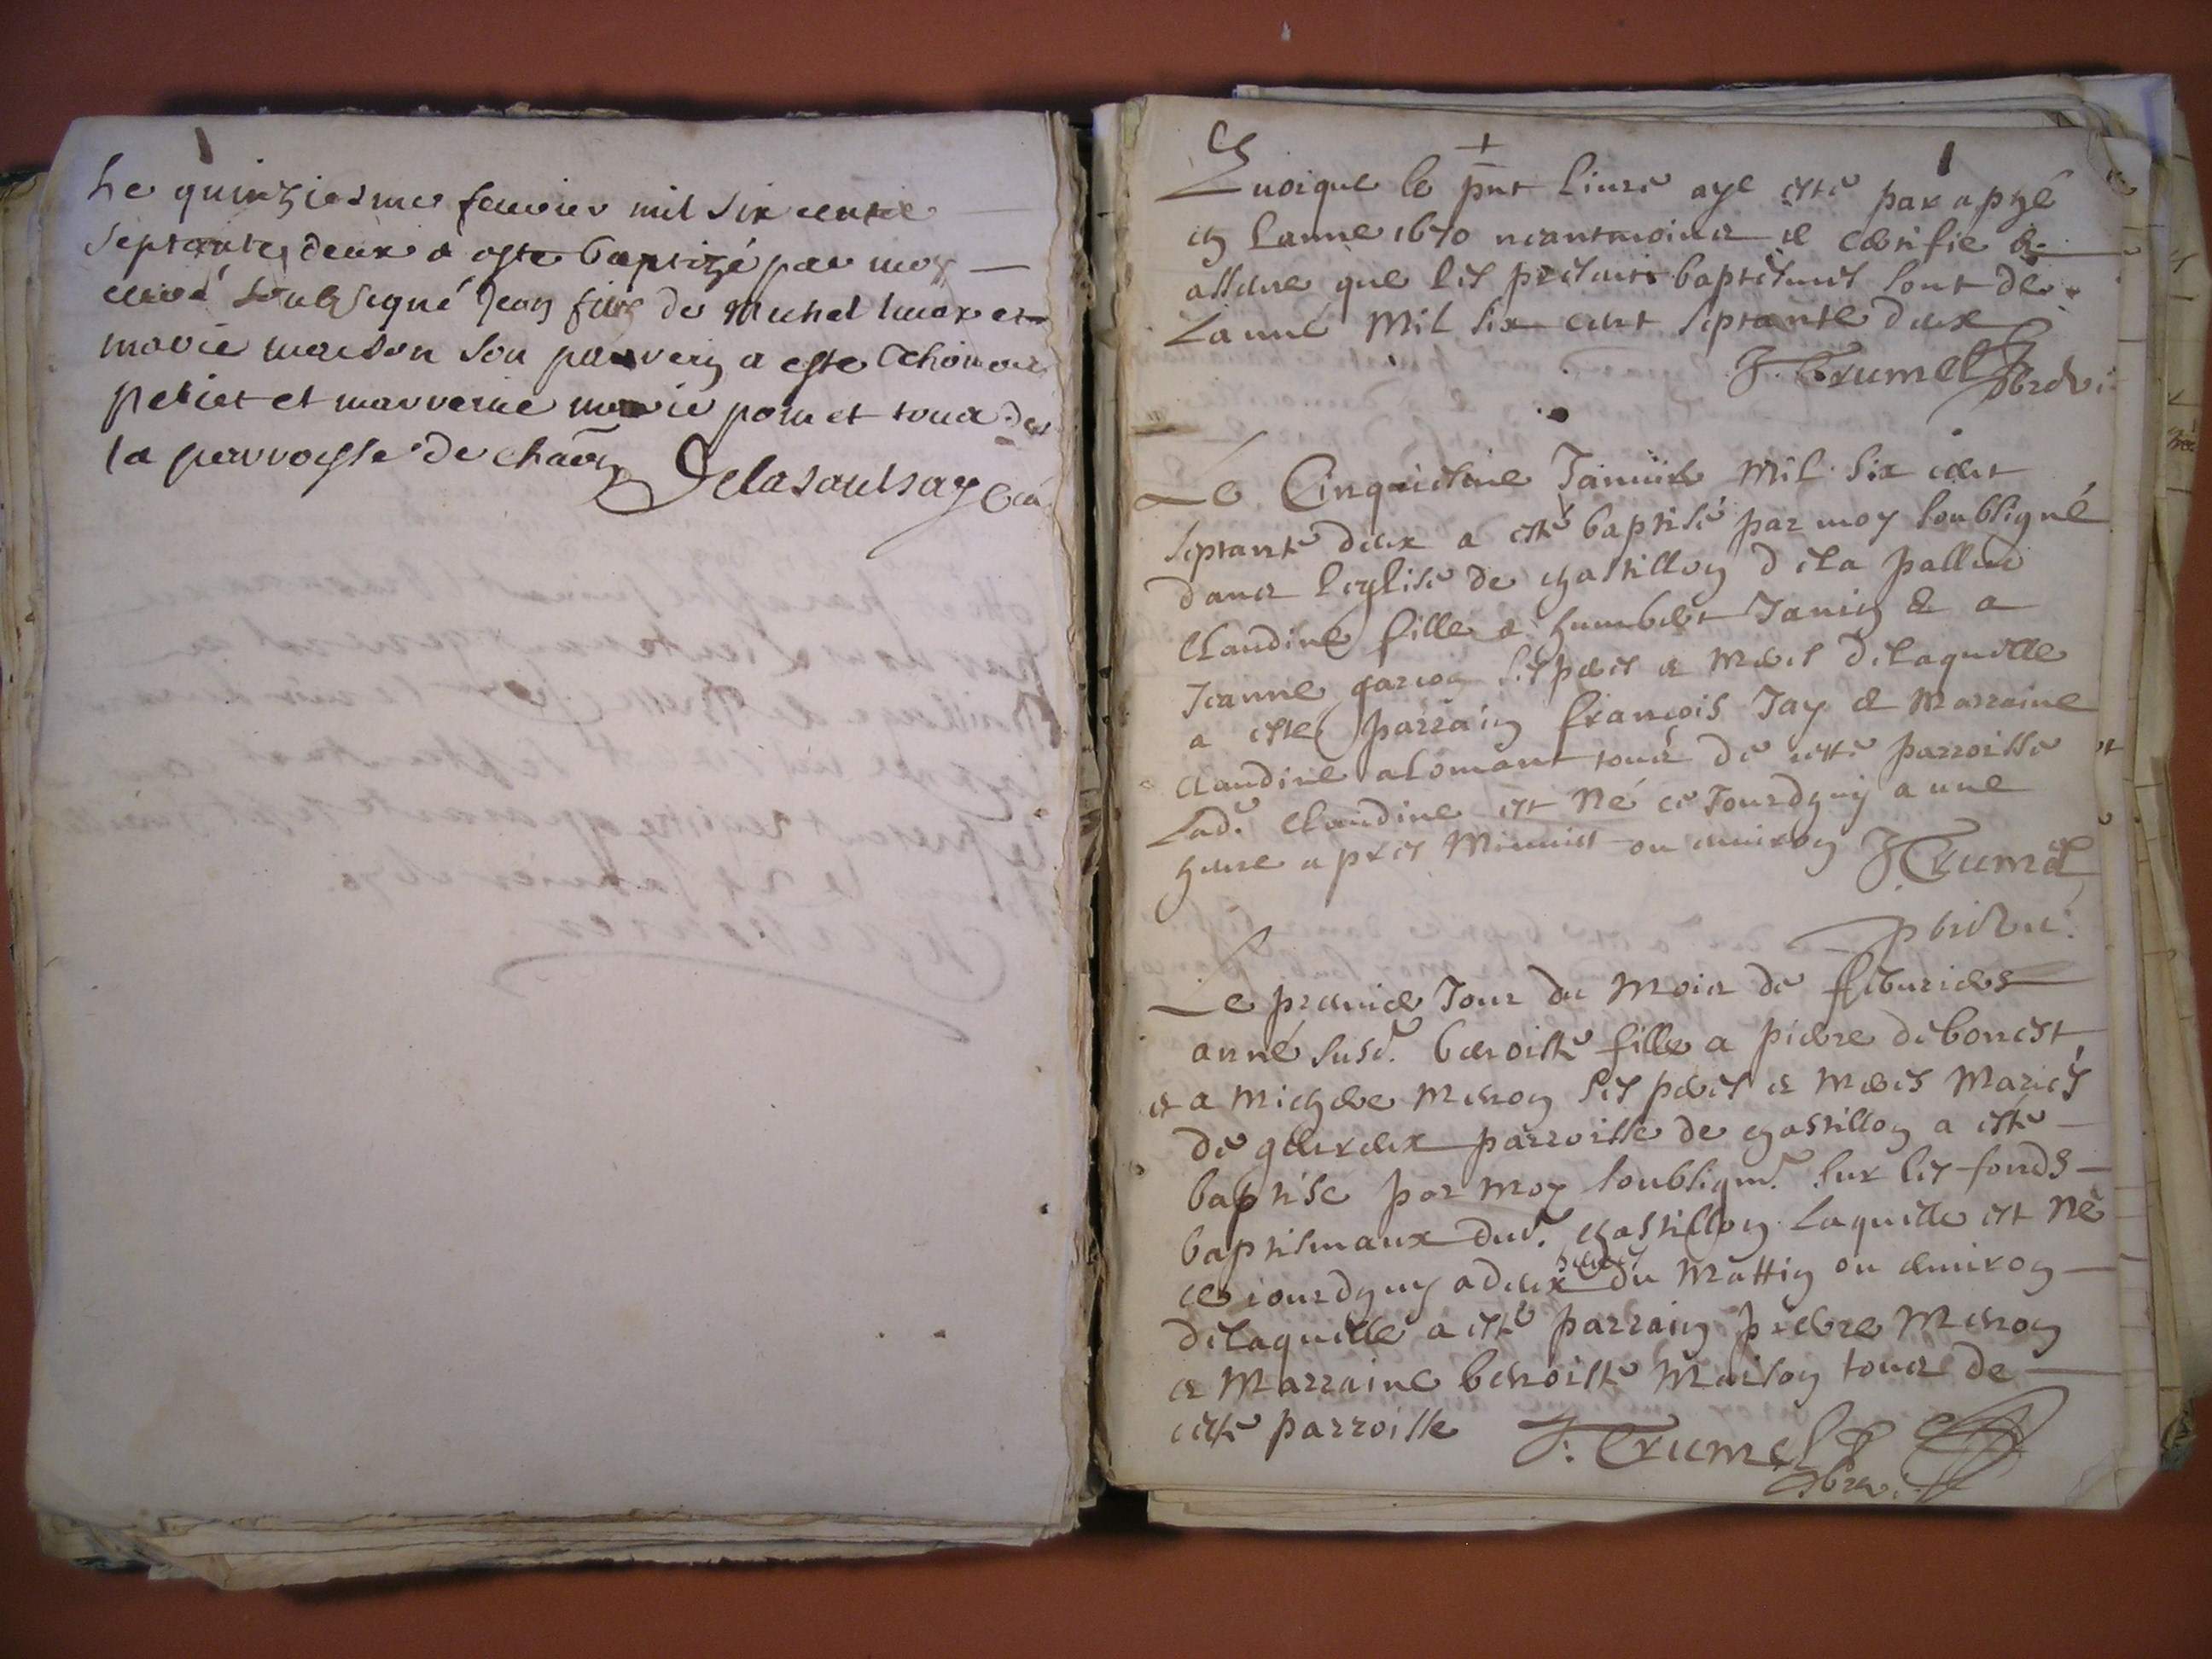 Le quinziesme feuvier mil six cents
septantes deux a este baptizé par moy
curé soubsigné Jean fils de Michel
marie maison son parrein a este
et marreine marie pom et tous de
la parroysse de
Delasaulsay Cu
Quoique le pnt liure aye esté parapgé
en lanne 1670 neantmoins ie certifie &
asseure que les presents baptesmes sont de
lanné Mil six cent septante deux
J. Trumel
Le Cinquiesme Januier Mil six cent
septante deux a esté baptisé par moy soubsigné
dans leglise de chastillon de la pallud
Claudine fille a humbert Janin & a
Jeanne garion ses peres & meres de laquelle
a esté parrain françois Jay & Marraine
claudine alomant tous de cette parroisse
Lade. Claudine est né ce Jourdhuy a une
heure apres Minuict ou enuiron J Trumel
Le premier Jour du Mois de feburier
anné susd. benoiste fille a pierre debonest
& a Michere Menon ses peres & meres Mariés
de parroisse de chastillon a esté
baptise par moy soubsigné. sur les fonds
baptismaux dud. chastillon laquelle est né
ce iourdhuy a deux heures du Mattin ou enuiron
de laquelle a esté parrain pierre Menon
& Marraine benoiste Maison tous de
cette parroisse J: Trumel